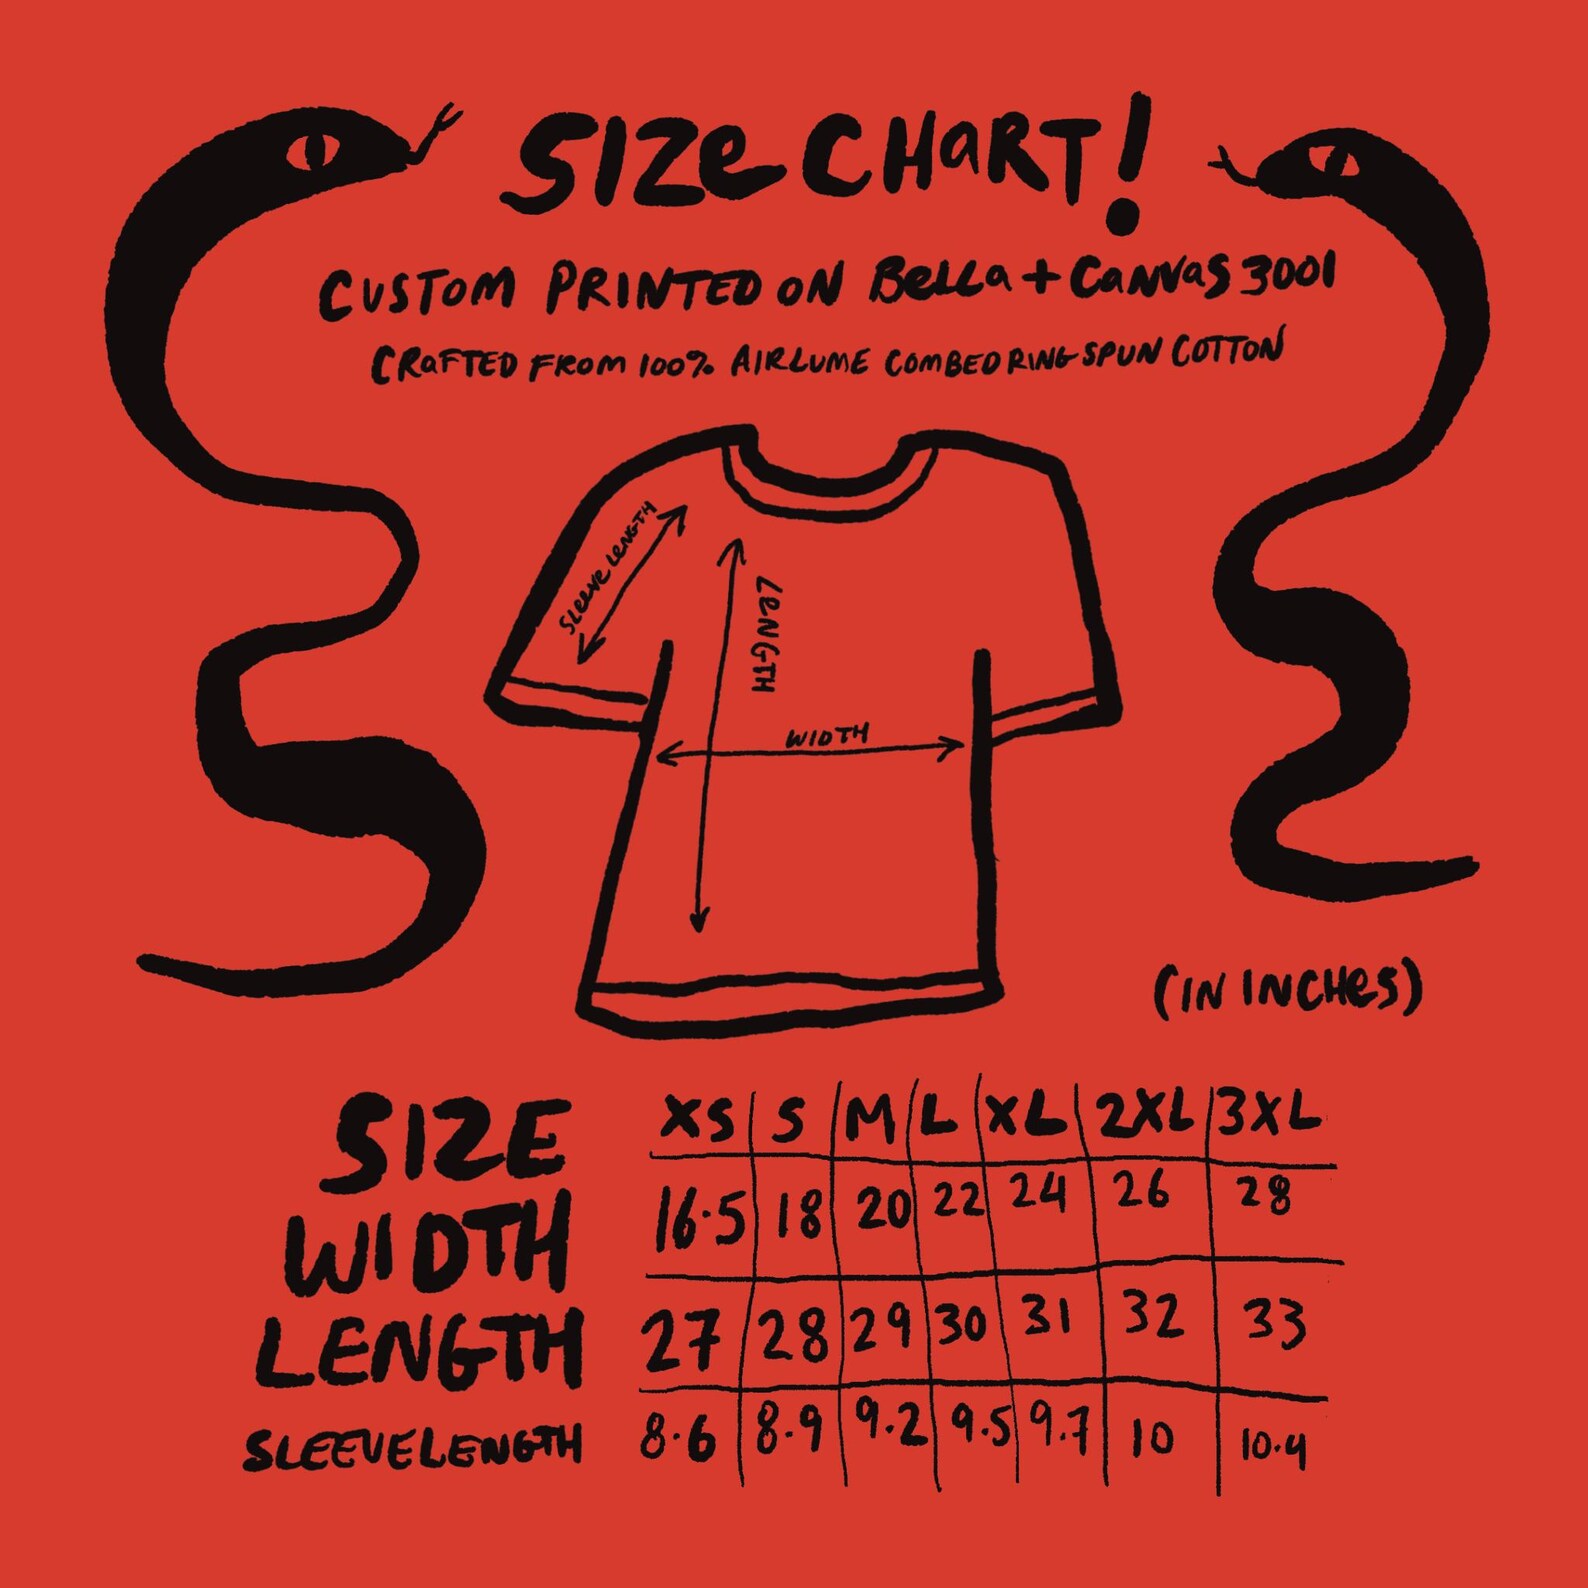 SIZe CHaRT!
CUSTOM PRINTED ON BeLLa + CaNVaS 3001
CRaFTED FROM 100% AIRLUME COMBED RING-SPUN COTTON
SLeeVe LeNGTH
LeNGTH
WIDTH
(IN INCHeS)
SIZE XS S M L XL 2XL 3XL
WIDTH 16.5 18 20 22 24 26 28
LENGTH 27 28 29 30 31 32 33
SLEEVE LENGTH 8.6 8.9 9.2 9.5 9.7 10 10.4